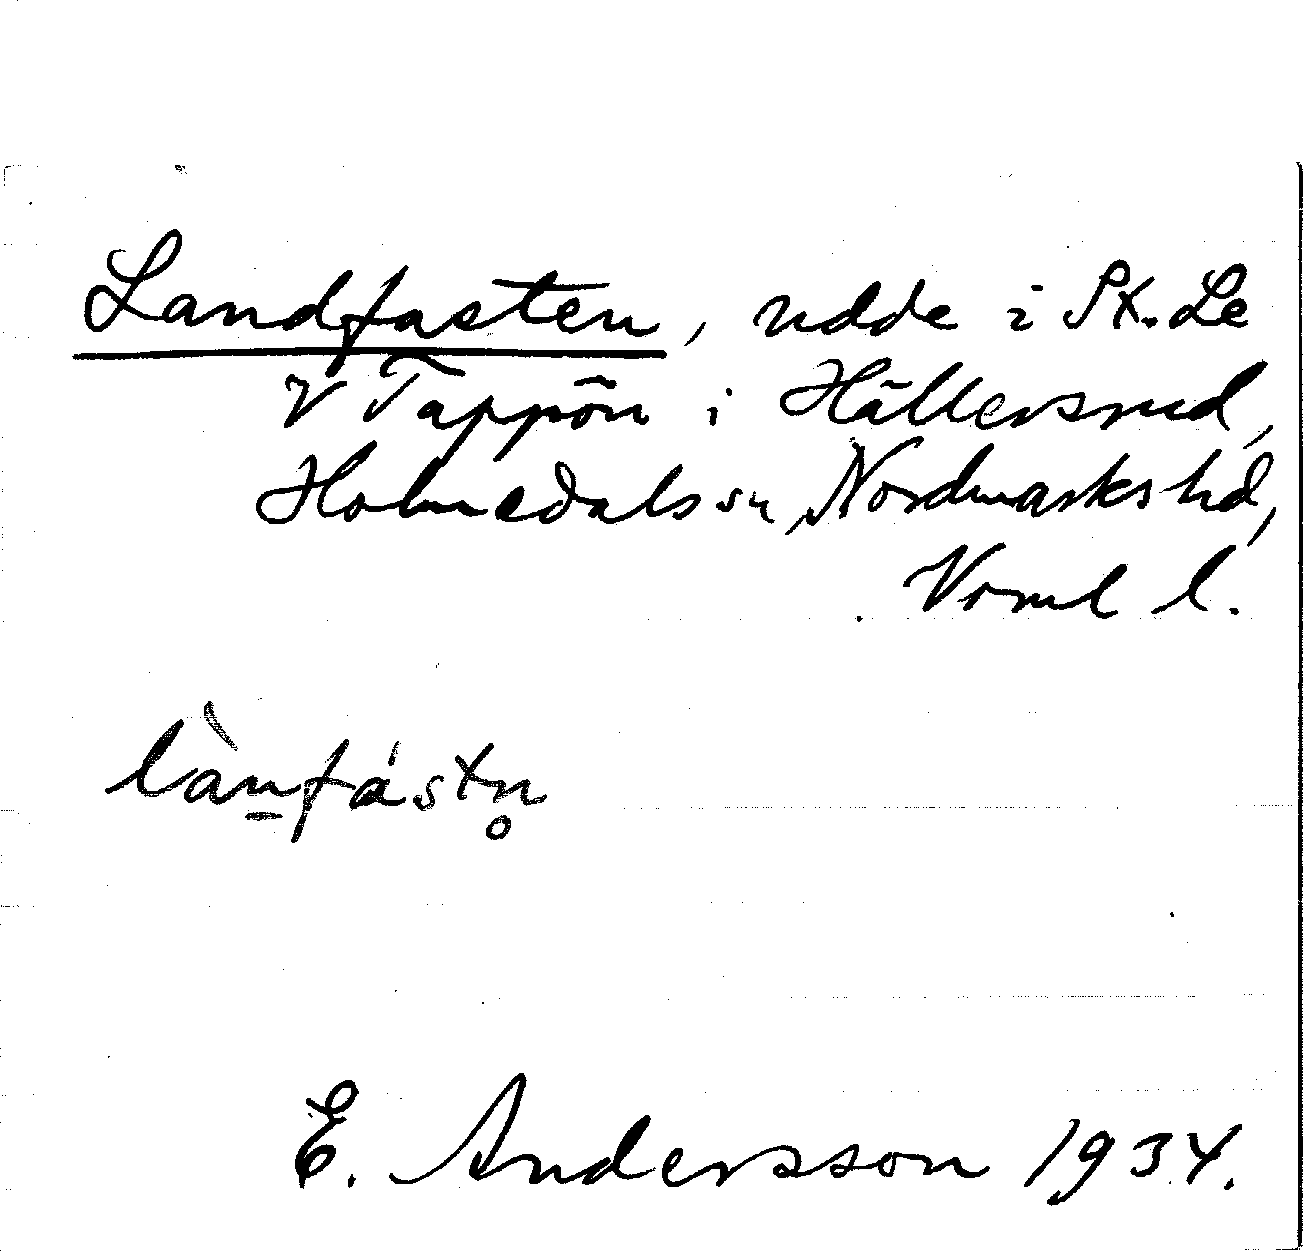 Landfasten, udde i St. Le
V Tappön i Hällersrud,
Holmedals sn, Nordmarks hd,
Vrml l.
la\`nfástn̥
E. Andersson 1934.